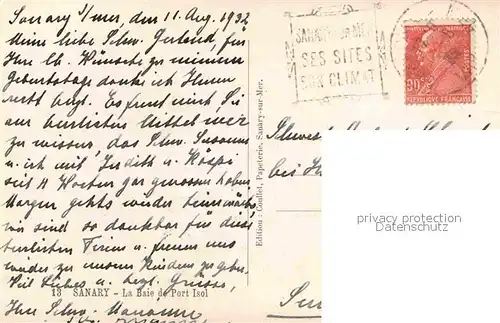 Sanary s/mer, den 11. Aug. 1932
Meine liebe Schw. Gertrud, für
Ihre lb. Wünsche zu meinem
Geburtstage danke ich Ihnen
recht herzl. Es freut mich Sie
am herrlichen Mittelmeer
zu wissen, das Schw. Susanna
u. ich mit Judith u.
seit 4 Wochen gar genossen haben.
Morgen gehts wieder heimwärts
wir sind so dankbar für diese
herrlichen Ferien u. freuen uns
wieder zu unsern Kindern zu gehen.
Viel Liebes u. herzl. Grüsse,
Ihre Schw. Marianne
13 SANARY - La Baie de Port Isol
Edition : Coullet, Papeterie, Sanary-sur-Mer.
SANARY SUR MER
SES SITES
SON CLIMAT
90c
REPUBLIQUE FRANÇAISE
Schwester
bei
privacy protection
Datenschutz